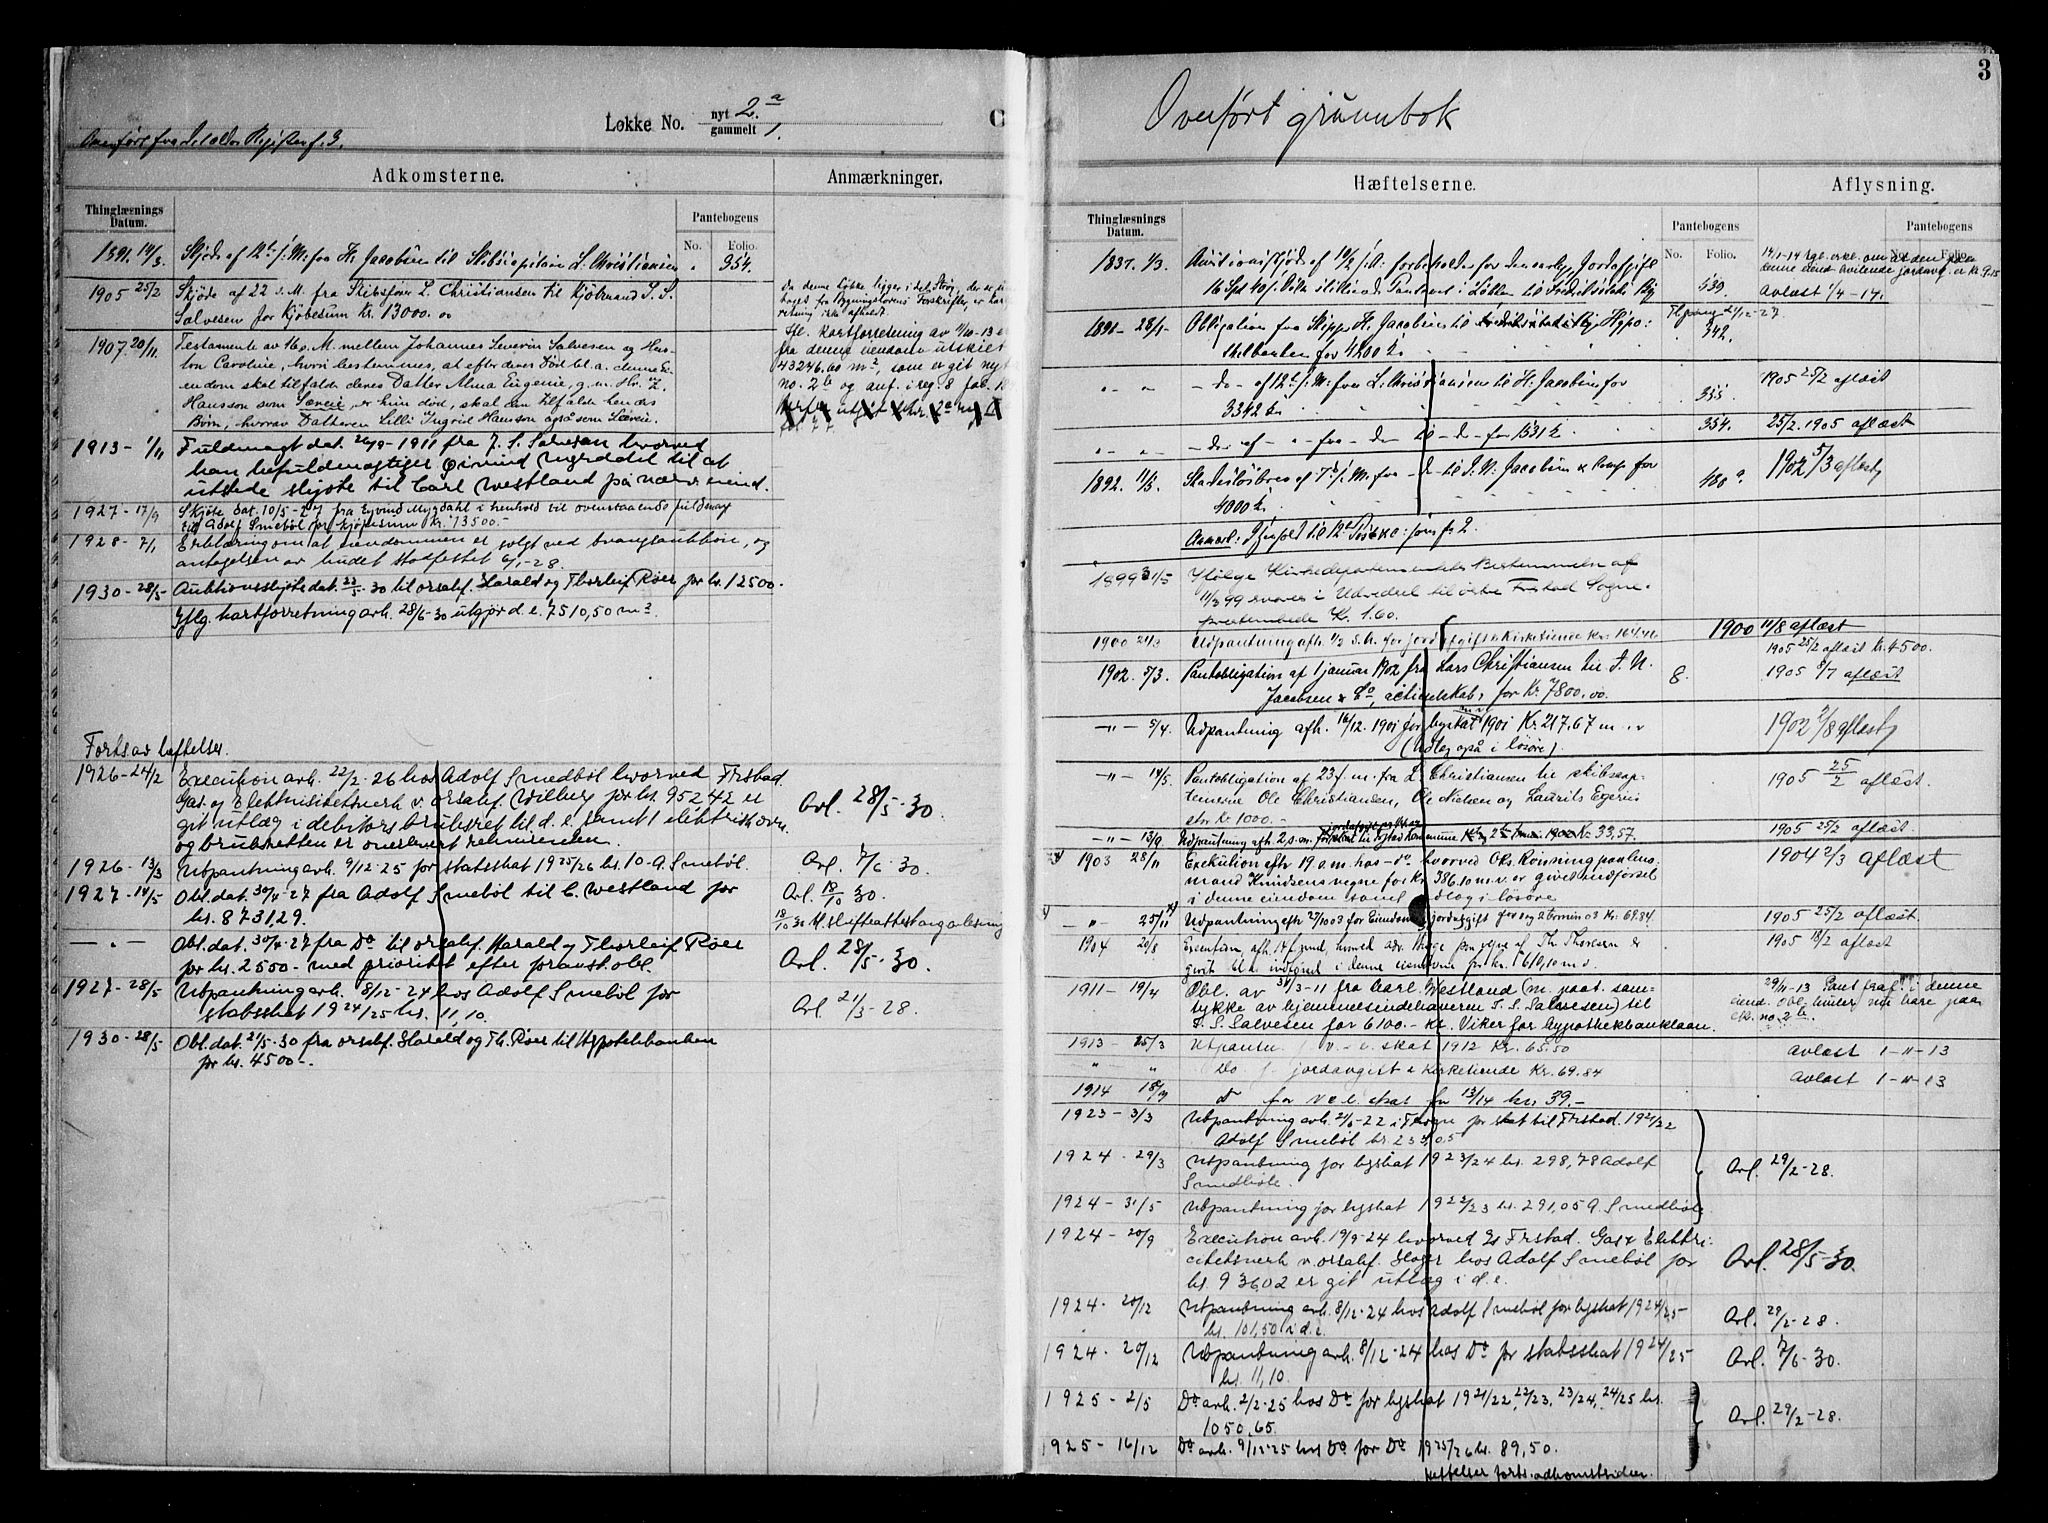 Løkke No. nyt 2.a
gammelt 1.
Adkomsterne.
Anmærkninger.
Thinglæsnings
Datum.
Pantebogens
No. Folio.
1891. 14/3. Skjøde af 12te s. M. fra H. Jacobsen til Skibscaptain L. Christiansen 354.
1905 25/2 Skjøde af 22 d. M. fra Skibsfører L. Christiansen til Kjøbmand J. S.
Salvesen for Kjøbesum Kr. 13000.00
1907. 20/11. Testamente av 16 s. M. mellem Johannes Severin Salvesen og Hus-
tru Caroline, hvori bestemmes, at efter deres Død bl. a. denne Ei-
endom skal tilfalde deres Datter Alma Eugenie, g. m. Hr. Z.
Hansson som Særeie, er hun død, skal den tilfalde hendes
Børn, hvorav Datteren Lilli Ingrid Hansson også som Særeie.
1913 - 1/11 Fuldmagt dat. 26/9 - 1911 fra J. S. Salvesen hvorved
han befuldmægtiger Eivind Mygdal til at
utstede skjøte til Carl Westland på nærv. eiend.
1927 - 17/9 Skjøte dat. 10/5 - 27 fra Eyvind Mygdahl i henhold til ovenstaaende fuldmagt
til Adolf Smebøl for kjøpesum Kr. 13500.-
1928 - 7/1 Erklæring om at eiendommen er solgt ved tvangsauktion, og
antagelsen av budet stadfestet 6/1-28.
1930 - 28/5 Auktionsskjøte dat. 22/5-30 til orsakf. Harald og Thorleif Røer for kr. 12500.
Iflg. kartforretning avh. 28/6-30 utgjør d. e. 7510,50 m2
da denne Løkke ligger i det Strøg,
Ifl. kartforretning av 11/10-13 er
fra denne eiendom utskilt
43246.60 m2, som er git nyt
no. 2b og anf. i reg. 8 fol. 18
Forts. av heftelser.
1926 - 24/2 Execution avh. 22/2-26 hos Adolf Smedbøl hvorved Frstad.
Gas og Elektrisitetsverk v. orsakf. Wilberg for kr. 952,42 er
git utlæg i debitors bruksret til d. e. samt 1 elektrisk ovn.
og bruksretten er overlevert rekvirenten. Avl. 28/5-30.
1926 - 13/3 Utpantning avh. 9/12-25 for statsskat 1925/26 kr. 10 - A. Smebøl. Avl. 7/6-30.
1927 - 14/5 Obl. dat. 30/4-27 fra Adolf Smebøl til C. Westland for
kr. 8731,29. Avl. 18/10 30.
— " — Obl. dat. 30/4-27 fra Do til orsakf. Harald og Thorleif Røer
for kr. 2500 - med prioritet efter foranst. obl. Avl. 28/5-30.
1927 - 28/5 Utpantning avh. 8/12-24 hos Adolf Smebøl for
statsskat 1924/25 kr. 11,10. Avl 21/3-28.
1930 - 28/5 Obl. dat. 21/5-30 fra orsakf. Harald og Th. Røer til Hypotekbanken
for kr. 4500 -.
3
Overført grunnbok
Hæftelserne.
Aflysning.
Thinglæsnings
Datum.
Pantebogens
No. Folio.
Pantebogens
No. Folio.
1837. 1/3. Auctionsskjøde af 10/2 s. A. 539. avlæst 1/4-14.
1891 - 28/1 Obligation fra Skipp. H. Jacobsen til Hypo:
thekbanken for 4200 Kr 342.
" " -do- af 12te s. M. fra L. Christiansen til H. Jacobsen for
3342 Kr 355. 1905 25/2 aflæst
" " -do- af -"- fra -do- til -do- for 1531 Kr. 354. 25/2.1905 aflæst
1892. 11/3. Skadesløsbrev af 7de s. M. fra -do- til J. N. Jacobsen & Comp for
4000 Kr. 480. 1902 5/3 aflæst
1899 31/5 Ifølge Kirkedepartementets Bestemmelse af
11/3 99 svares i Udredsel til østre Frstad Sogne-
præstembede Kr. 1.60.
1900 24/3 Udpantning afh. 1/2 d. A. for jordafgift & Kirketiende 1900 11/8 aflæst
1905 25/2 aflæst kr. 4500.
1902. 5/3. Pantobligation af 1 januar 1902 fra Lars Christiansen til J. N.
Jacobsen & Co, actieselskab, for Kr. 7800.00. 8. 1905 8/7 aflæst
—"— 5/4. Udpantning afh. 16/12.1901 for byskat 1901 Kr. 217.67 m. v
(Udlæg også i løsøre). 1902 2/8 aflæst
—"— 14/5. Pantobligation af 23 f. m. fra L. Christiansen til skibscap-
teinerne Ole Christiansen, Ole Nielsen og Laurits Egenæs
stor Kr. 1000.- 1905 25/2 aflæst.
—"— 13/9 Udpantning afh. 2 s. m. Kr. 33,57. 1905 25/2 aflæst.
1903 28/11 Exekution efter 19 o. m. hos -do- hvorved Ole Rønning paa Ens-
mand Knudsens vegne for Kr 386.10 m. v. er givet indførsel
i denne eiendom samt udlæg i løsøre 1904 2/3 aflæst
— " — 25/11 Udpantning eftr 27/10 03 for Eiendoms jordafgift for og 2 termin 03 Kr. 69.84. 1905 25/2 aflæst.
1904 20/8 Execution, afh. 14 f. mnd, hvorved adv. Thøge paa vegne af Th. Thoresen er
givet bl. a. indførsel i denne eiendom for kr. 1610,10 m. v. 1905 18/2 aflæst
1911 - 19/4 Obl. av 31/3-11 fra Carl Westland (m. paat. sam-
tykke av hjemmelsindehaveren J. S. Salvesen) til
J. S. Salvesen for 6100.- Kr. Viker for hypothekbanklaan.
1913 - 25/3 Utpantn. f. v. - e. skat 1912 Kr. 65.50 avlæst 1-11-13
" " do f. jordavgift & kirketiende Kr. 69.84 avlæst 1-11-13
1914 18/7 Do for v. e. skat for 13/14 kr. 39.-
1923 - 3/3 Utpantning avh. 21/6-22 for skat til Frstad. 1921/22
Adolf Smebøl
1924 - 29/3 Utpantning for byskat 1923/24 kr. 298,78 Adolf
Smedbøl. Avl. 29/2-28.
1924 - 31/5 Utpantning for byskat 1922/23 kr. 291,05 A. Smedbøl.
1924 - 20/9 Execution avh. 19/9-24 hvorved Frstad. Gas & Elektri-
citetsverk v. orsakf. Hager hos Adolf Smebøl for
kr. 936,02 er git utlæg i d. e. Avl. 28/5-30.
1924 - 20/12 Utpantning avh. 8/12-24 hos Adolf Smebøl for byskat 1924/25
kr. 101,50 i d. e. Avl. 29/2-28.
1924 - 20/12 Utpantning avh. 8/12-24 hos Do for statsskat 1924/25
kr. 11,10. Avl. 7/6-30.
1925 - 2/5 Do avh. 2/2-25 hos Do for byskat 1921/22, 22/23, 23/24, 24/25 kr.
1050,65. Avl. 29/2-28.
1925 - 16/12 Do avh. 9/12-25 hos Do for Do 1925/26 kr. 89,50.
Heftelser forts. adkomstsiden.